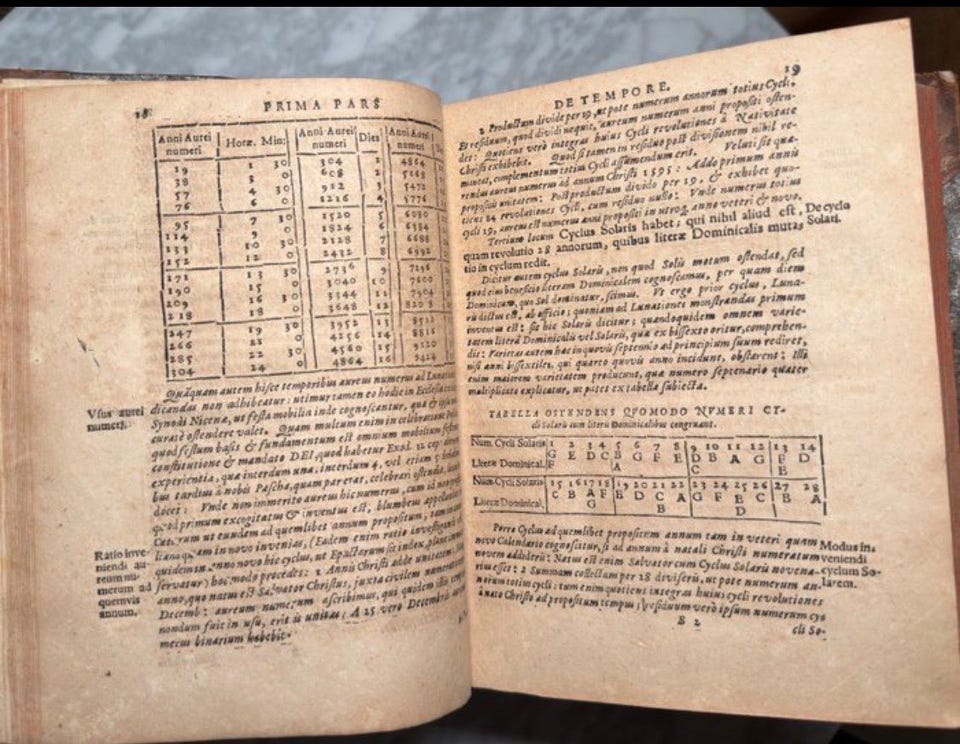 18
PRIMA PARS
Anni Aurei numeri | Horæ. Min: | Anni Aurei numeri | Dies | Anni Aurei numeri
19 | 1 30 | 304 | 1 | 4864
38 | 3 0 | 608 | 2 | 5168
57 | 4 30 | 912 | 3 | 5472
76 | 6 0 | 1216 | 4 | 5776
95 | 7 30 | 1520 | 5 | 6080
114 | 9 0 | 1824 | 6 | 6384
133 | 10 30 | 2128 | 7 | 6688
152 | 12 0 | 2432 | 8 | 6992
171 | 13 30 | 2736 | 9 | 7296
190 | 15 0 | 3040 | 10 | 7600
209 | 16 30 | 3344 | 11 | 7904
218 | 18 0 | 3648 | 12 | 8208
247 | 19 30 | 3952 | 13 | 8512
266 | 21 0 | 4256 | 14 | 8816
285 | 22 30 | 4560 | 15 | 9120
304 | 24 0 | 4864 | 16 | 9424
Quãquam autem hisce temporibus aureus numerus ad
Vsus aurei numeri.
dicandas non adhibeatur: utimur tamen eo hodie in
Synodi Nicenæ, ut festa mobilia inde cognoscantur, quæ &
curatè ostendere valet. Quam multum enim in celebratione
quod festum basis & fundamentum est omnium mobilium
constitutione & mandato DEI, quod habetur Exod. 12
experientia, quæ interdum una, interdum 4, vel etiam 5
bus tardius à nobis Pascha, quam par erat, celebrari ostendit,
docet: Vnde non immerito aureus hic numerus, cum id
quod primum excogitatus & inventus est,
Cæterum ut eundem ad quemlibet annum propositum; tam in
Ratio inveniendi aureum numerum ad quemvis annum.
quam in novo invenias, (Eadem enim ratio investigandi
quidem in novo hic cyclus, ut Epactarum sit index,
servatur) hoc modo procedes: 1 Annis Christi adde unitatem:
anno, quo natus est Salvator Christus, juxta civilem
Decemb: aureum numerum ascribimus, qui quidem
nondum fuit in usu, erit is unitas: A 25 verò Decembris
merus binarium habebit.
DE TEMPORE.
19
2 Productum divide per 19, ut pote numerum annorum totius Cycli.
Et residuum, quod dividi nequit, aureum numerum anni propositi osten-
det: Quotiens verò integras huius Cycli revolutiones à Nativitate
Christi exhibebit. Quod si tamen in residuo post divisionem nihil re-
maneat, complementum totius Cycli assumendum erit. Veluti sit quæ-
rendus aureus numerus ad annum Christi 1595: Addo primum annis
propositis unitatem: Post productum divido per 19, & exhibet quo-
tiens 84 revolutiones Cycli, cum residuo nullo: Vnde numerus totius
cycli 19, aureus est numerus anni propositi in utroq; anno veteri & novo.
Tertium locum Cyclus Solaris habet; qui nihil aliud est,
De cyclo Solari.
quam revolutio 28 annorum, quibus literæ Dominicalis muta-
tio in cyclum redit.
Dicitur autem cyclus Solaris, non quod Solis motum ostendat, sed
quod eius beneficio literam Dominicalem cognoscamus, per quam diem
Dominicum, quo Sol dominatur, scimus. Vt ergo prior cyclus, Luna-
ris dictus est, ab officio; quoniam ad Lunationes monstrandas primum
inventus est: sic hic Solaris dicitur; quandoquidem omnem varie-
tatem literæ Dominicalis vel Solaris, quæ ex bissexto oritur, comprehen-
dit: Varietas autem hæc in quovis septennio ad principium suum rediret,
nisi anni bissextiles, qui quarto quovis anno incidunt, obstarent: Illi
enim maiorem varietatem producunt, quæ numero septenario quater
multiplicato explicatur, ut patet ex tabella subiecta.
TABELLA OSTENDENS QVOMODO NVMERI CY-
cli Solaris cum literis Dominicalibus congruant.
Num. Cycli Solaris | 1 2 3 4 | 5 6 7 8 | 9 10 11 12 | 13 14
Literæ Dominical. | G E D C | B G F E | D B A G | F D
F | A | C | E
Num. Cycli Solaris | 15 16 17 18 | 19 20 21 22 | 23 24 25 26 | 27 28
Literæ Dominical. | C B A F | E D C A | G F E C | B A
G | B | D
Porro Cyclus ad quemlibet propositum annum tam in veteri quam
Modus inveniendi cyclum Solarem.
novo Calendario cognoscitur, si ad annum à natali Christi numeratum
novem addideris: Natus est enim Salvator cum Cyclus Solaris novena-
rius esset: 2 Summam collectam per 28 diviseris, ut pote numerum an-
norum totius cycli: tum enim quotiens integras huius cycli revolutiones
à nato Christo ad propositum tempus; residuum verò ipsum numerum cy-
B 2
cli So-